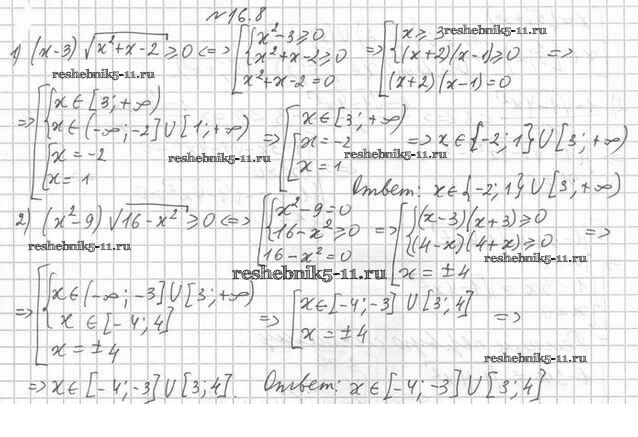 №16.8
1) (x-3) √(x²+x-2) ≥ 0 <=> [ { x²-3 ≥ 0 { x²+x-2 ≥ 0 [ x²+x-2 = 0 => [ { x ≥ 3 { (x+2)(x-1) ≥ 0 [ (x+2)(x-1) = 0 =>
reshebnik5-11.ru reshebnik5-11.ru
=> [ { x ∈ [3; +∞) { x ∈ (-∞; -2] ∪ [1; +∞) [ x = -2 [ x = 1 => [ x ∈ [3; +∞) [ x = -2 [ x = 1 => x ∈ {-2; 1} ∪ [3; +∞)
reshebnik5-11.ru reshebnik5-11.ru
Ответ: x ∈ {-2; 1} ∪ [3; +∞)
2) (x²-9) √(16-x²) ≥ 0 <=> [ { x²-9 = 0 { 16-x² ≥ 0 [ 16-x² = 0 => [ { (x-3)(x+3) ≥ 0 { (4-x)(4+x) ≥ 0 [ x = ±4 =>
reshebnik5-11.ru reshebnik5-11.ru
reshebnik5-11.ru
=> [ { x ∈ (-∞; -3] ∪ [3; +∞) { x ∈ [-4; 4] [ x = ±4 => [ x ∈ [-4; -3] ∪ [3; 4] [ x = ±4 =>
reshebnik5-11.ru
=> x ∈ [-4; -3] ∪ [3; 4]. Ответ: x ∈ [-4; -3] ∪ [3; 4]